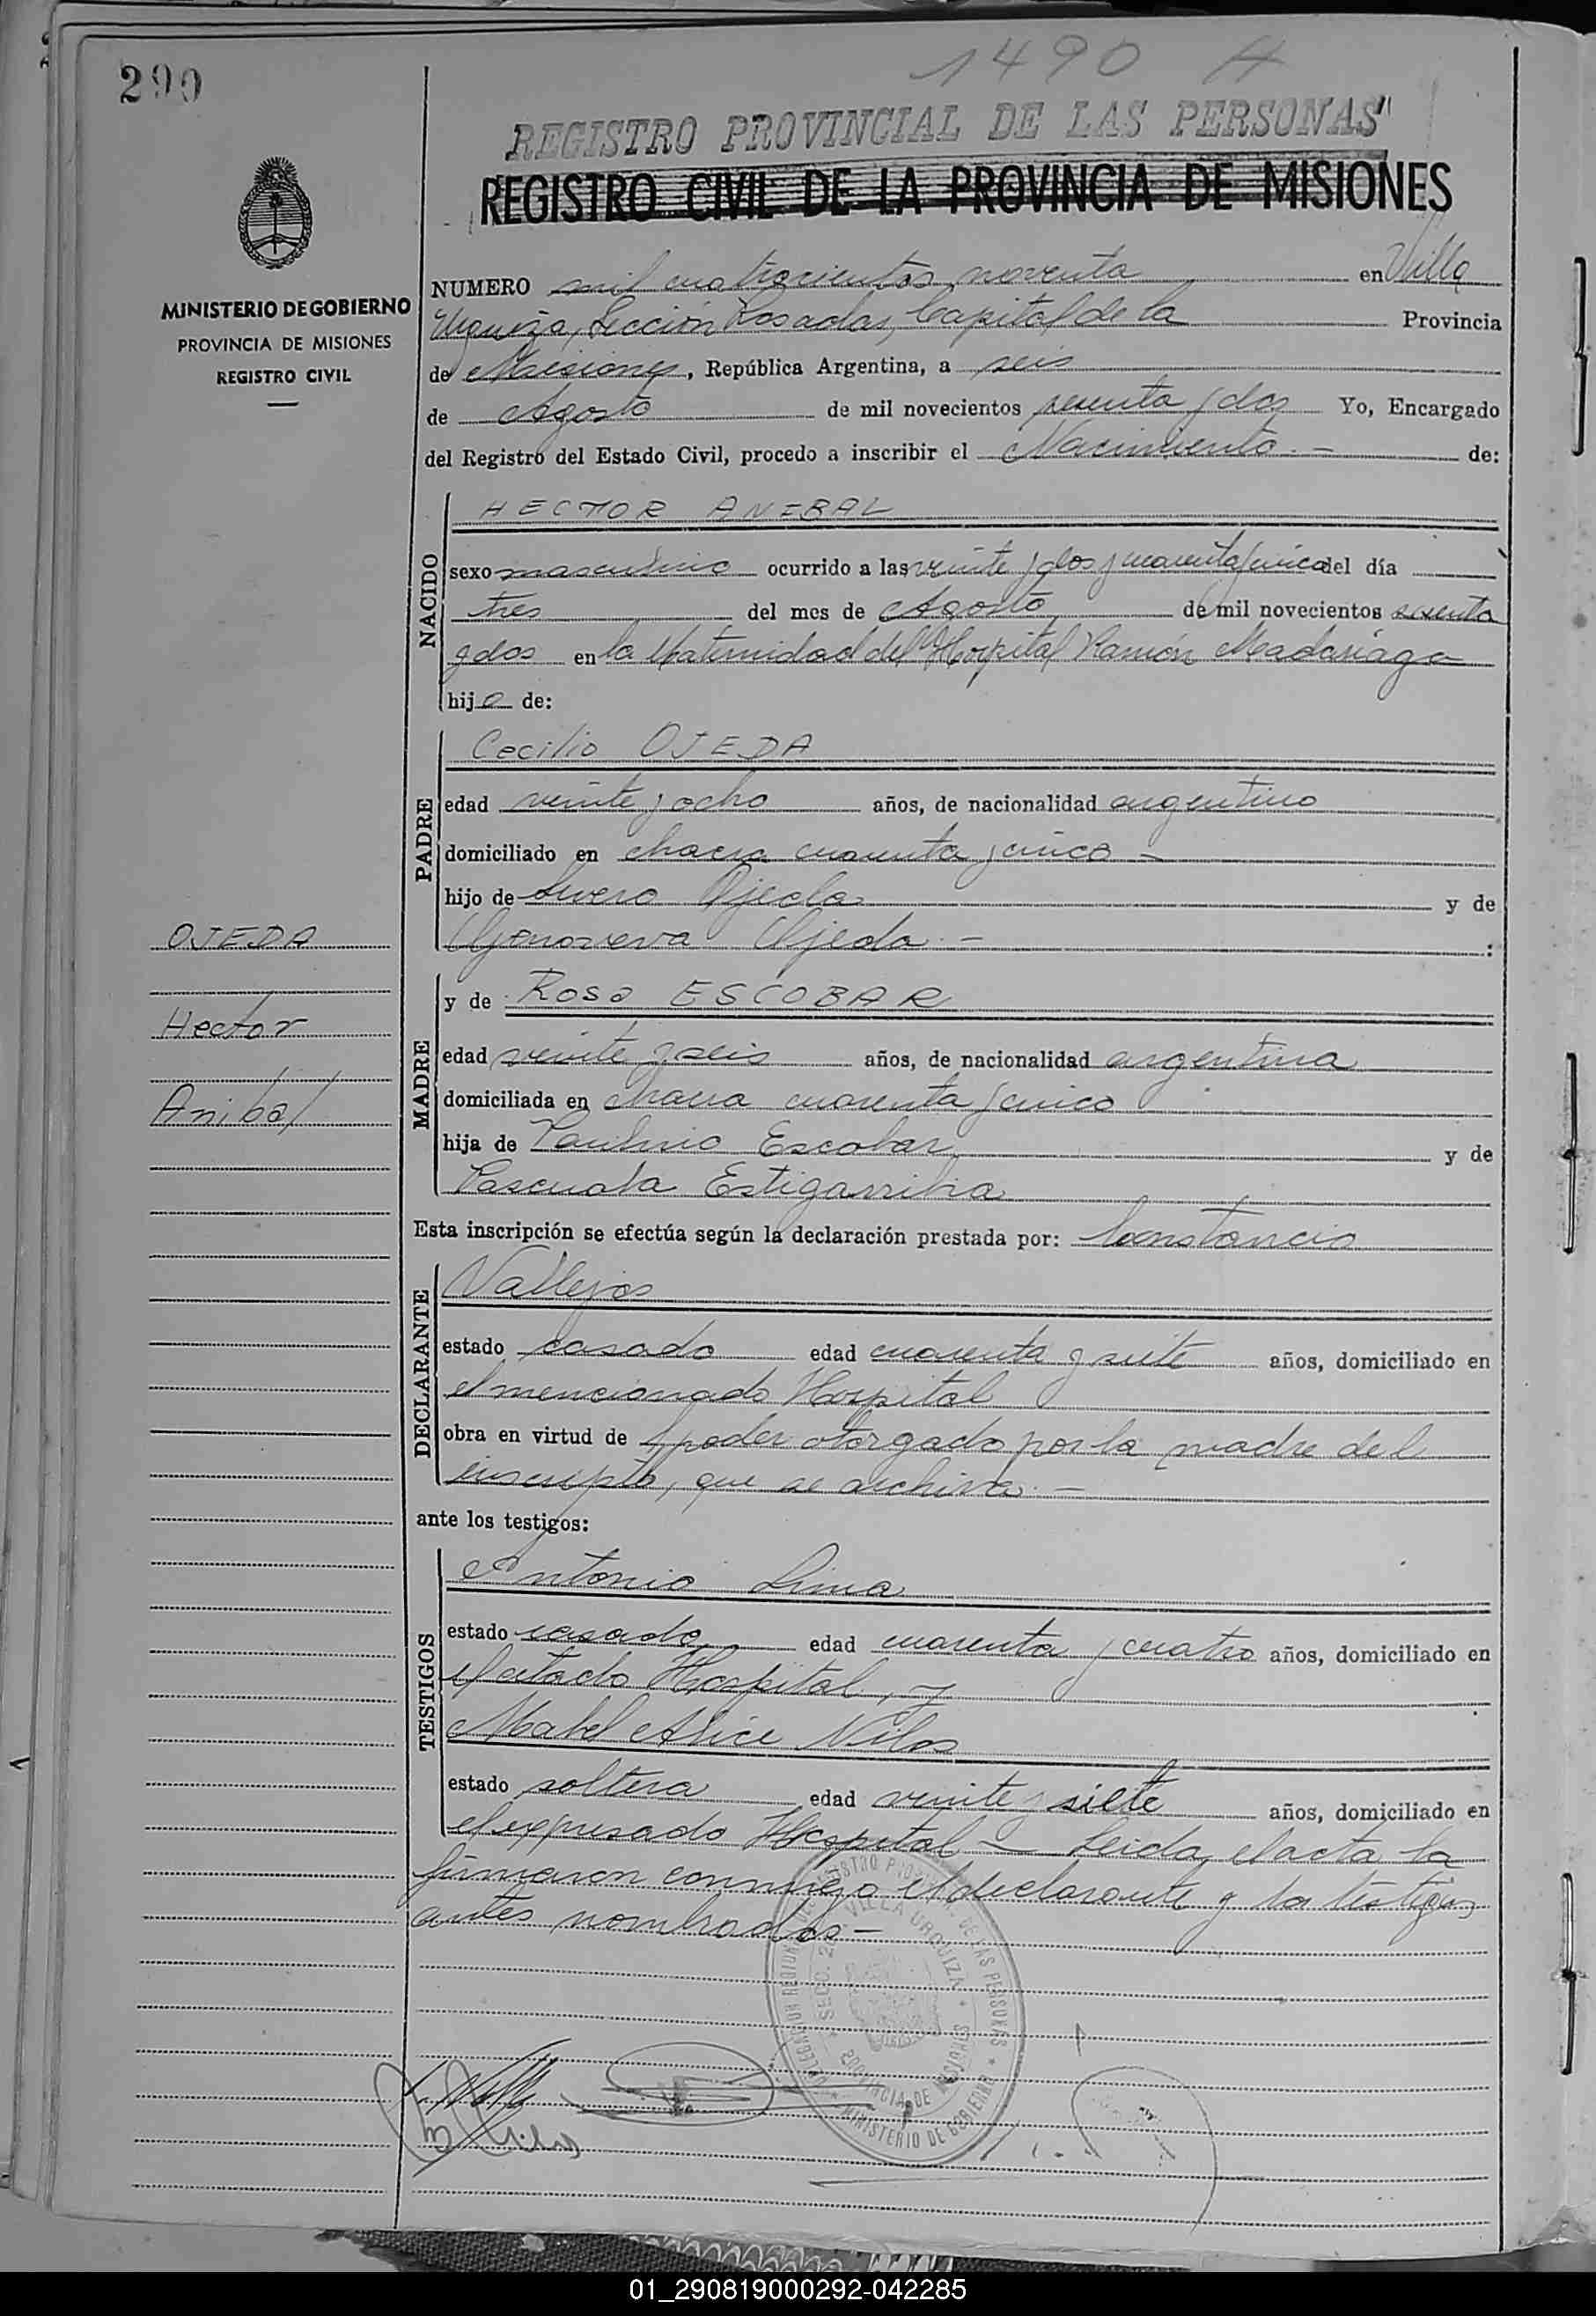 290
1490 A
REGISTRO PROVINCIAL DE LAS PERSONAS"
REGISTRO CIVIL DE LA PROVINCIA DE MISIONES
MINISTERIO DE GOBIERNO
PROVINCIA DE MISIONES
REGISTRO CIVIL
NUMERO mil cuatrocientos noventa en Villa
Urquiza, Sección Posadas, Capital de la Provincia
de Misiones, República Argentina, a seis
de Agosto de mil novecientos sesenta y dos Yo, Encargado
del Registro del Estado Civil, procedo a inscribir el Nacimiento.- de:
NACIDO
HECTOR ANIBAL
sexo masculino ocurrido a las veinte y dos y cuarenta y cinco del día
tres del mes de Agosto de mil novecientos sesenta
y dos en la Maternidad del Hospital Ramón Madariaga
hijo de:
PADRE
Cecilio OJEDA
edad veinte y ocho años, de nacionalidad argentino
domiciliado en chacra cuarenta y cinco -
hijo de Ojeda y de
Genoveva Ojeda.- :
OJEDA
Hector
Anibal
MADRE
y de Rosa ESCOBAR
edad veinte y seis años, de nacionalidad argentina
domiciliada en chacra cuarenta y cinco
hija de Paulino Escobar y de
Pascuala Estigarribia
Esta inscripción se efectúa según la declaración prestada por: Constancio
DECLARANTE
Vallejos
estado casado edad cuarenta y siete años, domiciliado en
el mencionado Hospital
obra en virtud de poder otorgado por la madre del
inscripto, que se archiva.-
ante los testigos:
TESTIGOS
Antonio Lima
estado casado edad cuarenta y cuatro años, domiciliado en
el citado Hospital, y
Mabel Alice Vilos
estado soltera edad veinte y siete años, domiciliado en
el expresado Hospital - Leida el acta la
firmaron conmigo el declarante y los testigos
antes nombrados -
SECC. 2a. VILLA URQUIZA
PROVINCIA DE MISIONES
MINISTERIO DE GOBIERNO
01_290819000292-042285